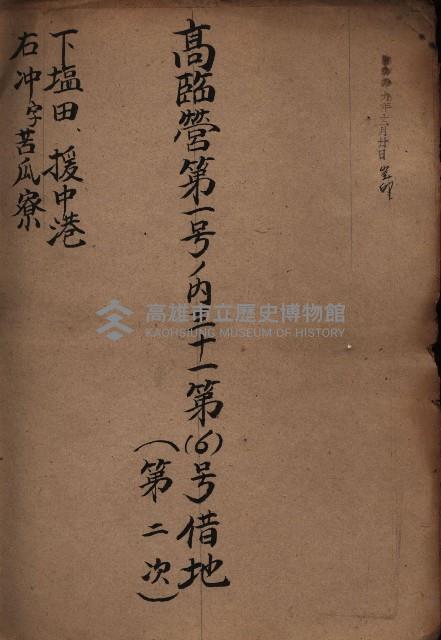 九年十二月廿日
高臨營第一号ノ内三十一第(6)号借地
(第二次)
下塩田、援中港
右冲字苦瓜寮
高雄市立歷史博物館
KAOHSIUNG MUSEUM OF HISTORY